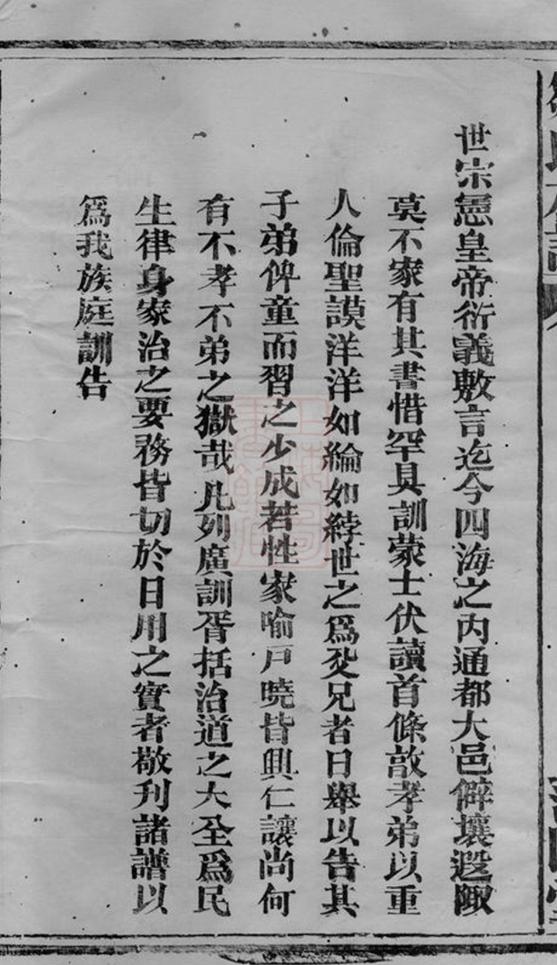 世宗憲皇帝衍義敷言迄今四海之內通都大邑僻壤遐陬
莫不家有其書惜罕具訓蒙士伏讀首條敦孝弟以重
人倫聖謨洋洋如綸如綍世之爲父兄者日舉以告其
子弟俾童而習之少成若性家喻戶曉皆興仁讓尚何
有不孝不弟之獄哉凡列廣訓胥括治道之大全爲民
生律身家治之要務皆切於日用之實者敬刊諸譜以
爲我族庭訓告